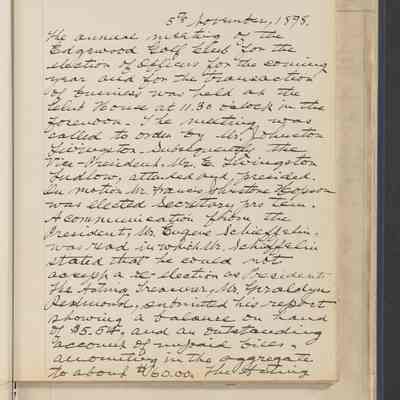 5th November, 1898.
The annual meeting of the
Edgewood Golf Club for the
election of Officers for the coming
year and for the transaction
of business was held at the
Club House at 11.30 o'clock in the
forenoon. The meeting was
called to order by Mr. Johnston
Livingston. Subsequently the
Vice-President, Mr. E. Livingston
Ludlow, attended and presided.
On motion Mr. Francis Johnstone Hopson
was elected Secretary pro tem.
A communication from the
President, Mr. Eugene Schieffelin,
was read in which Mr. Schieffelin
stated that he could not
accept a re-election as President.
The Acting Treasurer, Mr. Geraldyn
Redmond, submitted his report
showing a balance on hand
of $5.54, and an outstanding
account of unpaid bills,
amounting in the aggregate
to about $60.00. The Acting